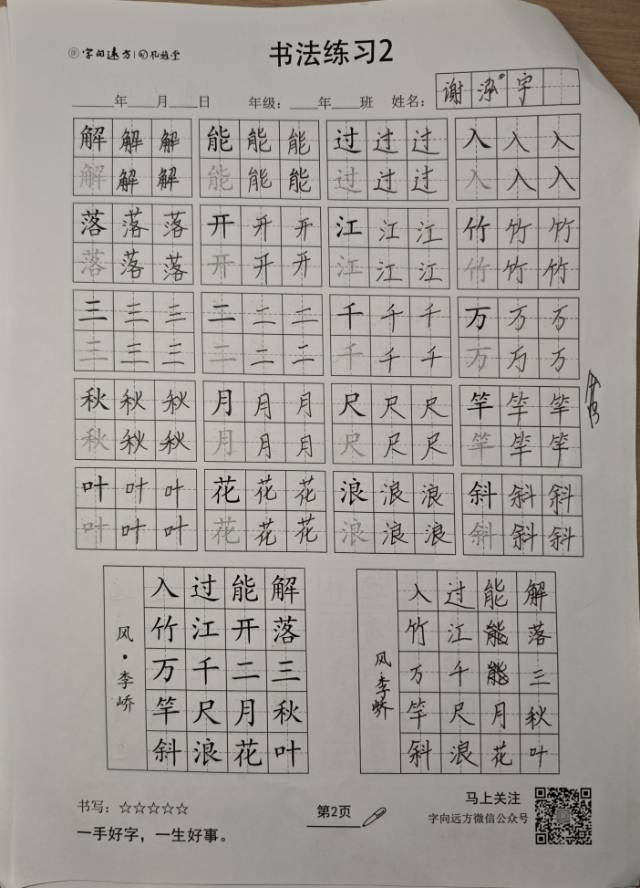 字向远方 孔庙堂
书法练习2
____年___月___日 年级：___年___班 姓名： 谢 泓 宇
解 解 解 能 能 能 过 过 过 入 入 入
解 解 解 能 能 能 过 过 过 入 入 入
落 落 落 开 开 开 江 江 江 竹 竹 竹
落 落 落 开 开 开 江 江 江 竹 竹 竹
三 三 三 二 二 二 千 千 千 万 万 万
三 三 三 二 二 二 千 千 千 万 万 万
秋 秋 秋 月 月 月 尺 尺 尺 竿 竿 竿
秋 秋 秋 月 月 月 尺 尺 尺 竿 竿 竿
叶 叶 叶 花 花 花 浪 浪 浪 斜 斜 斜
叶 叶 叶 花 花 花 浪 浪 浪 斜 斜 斜
解落三秋叶
能开二月花
过江千尺浪
入竹万竿斜
风·李峤
解落三秋叶
能月花
过江千尺浪
入竹万竿斜
风·李峤
书写：☆☆☆☆☆
一手好字，一生好事。
第2页
马上关注
字向远方微信公众号